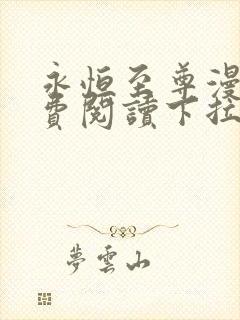 永恒至尊漫
費閱讀下拉
夢雲山